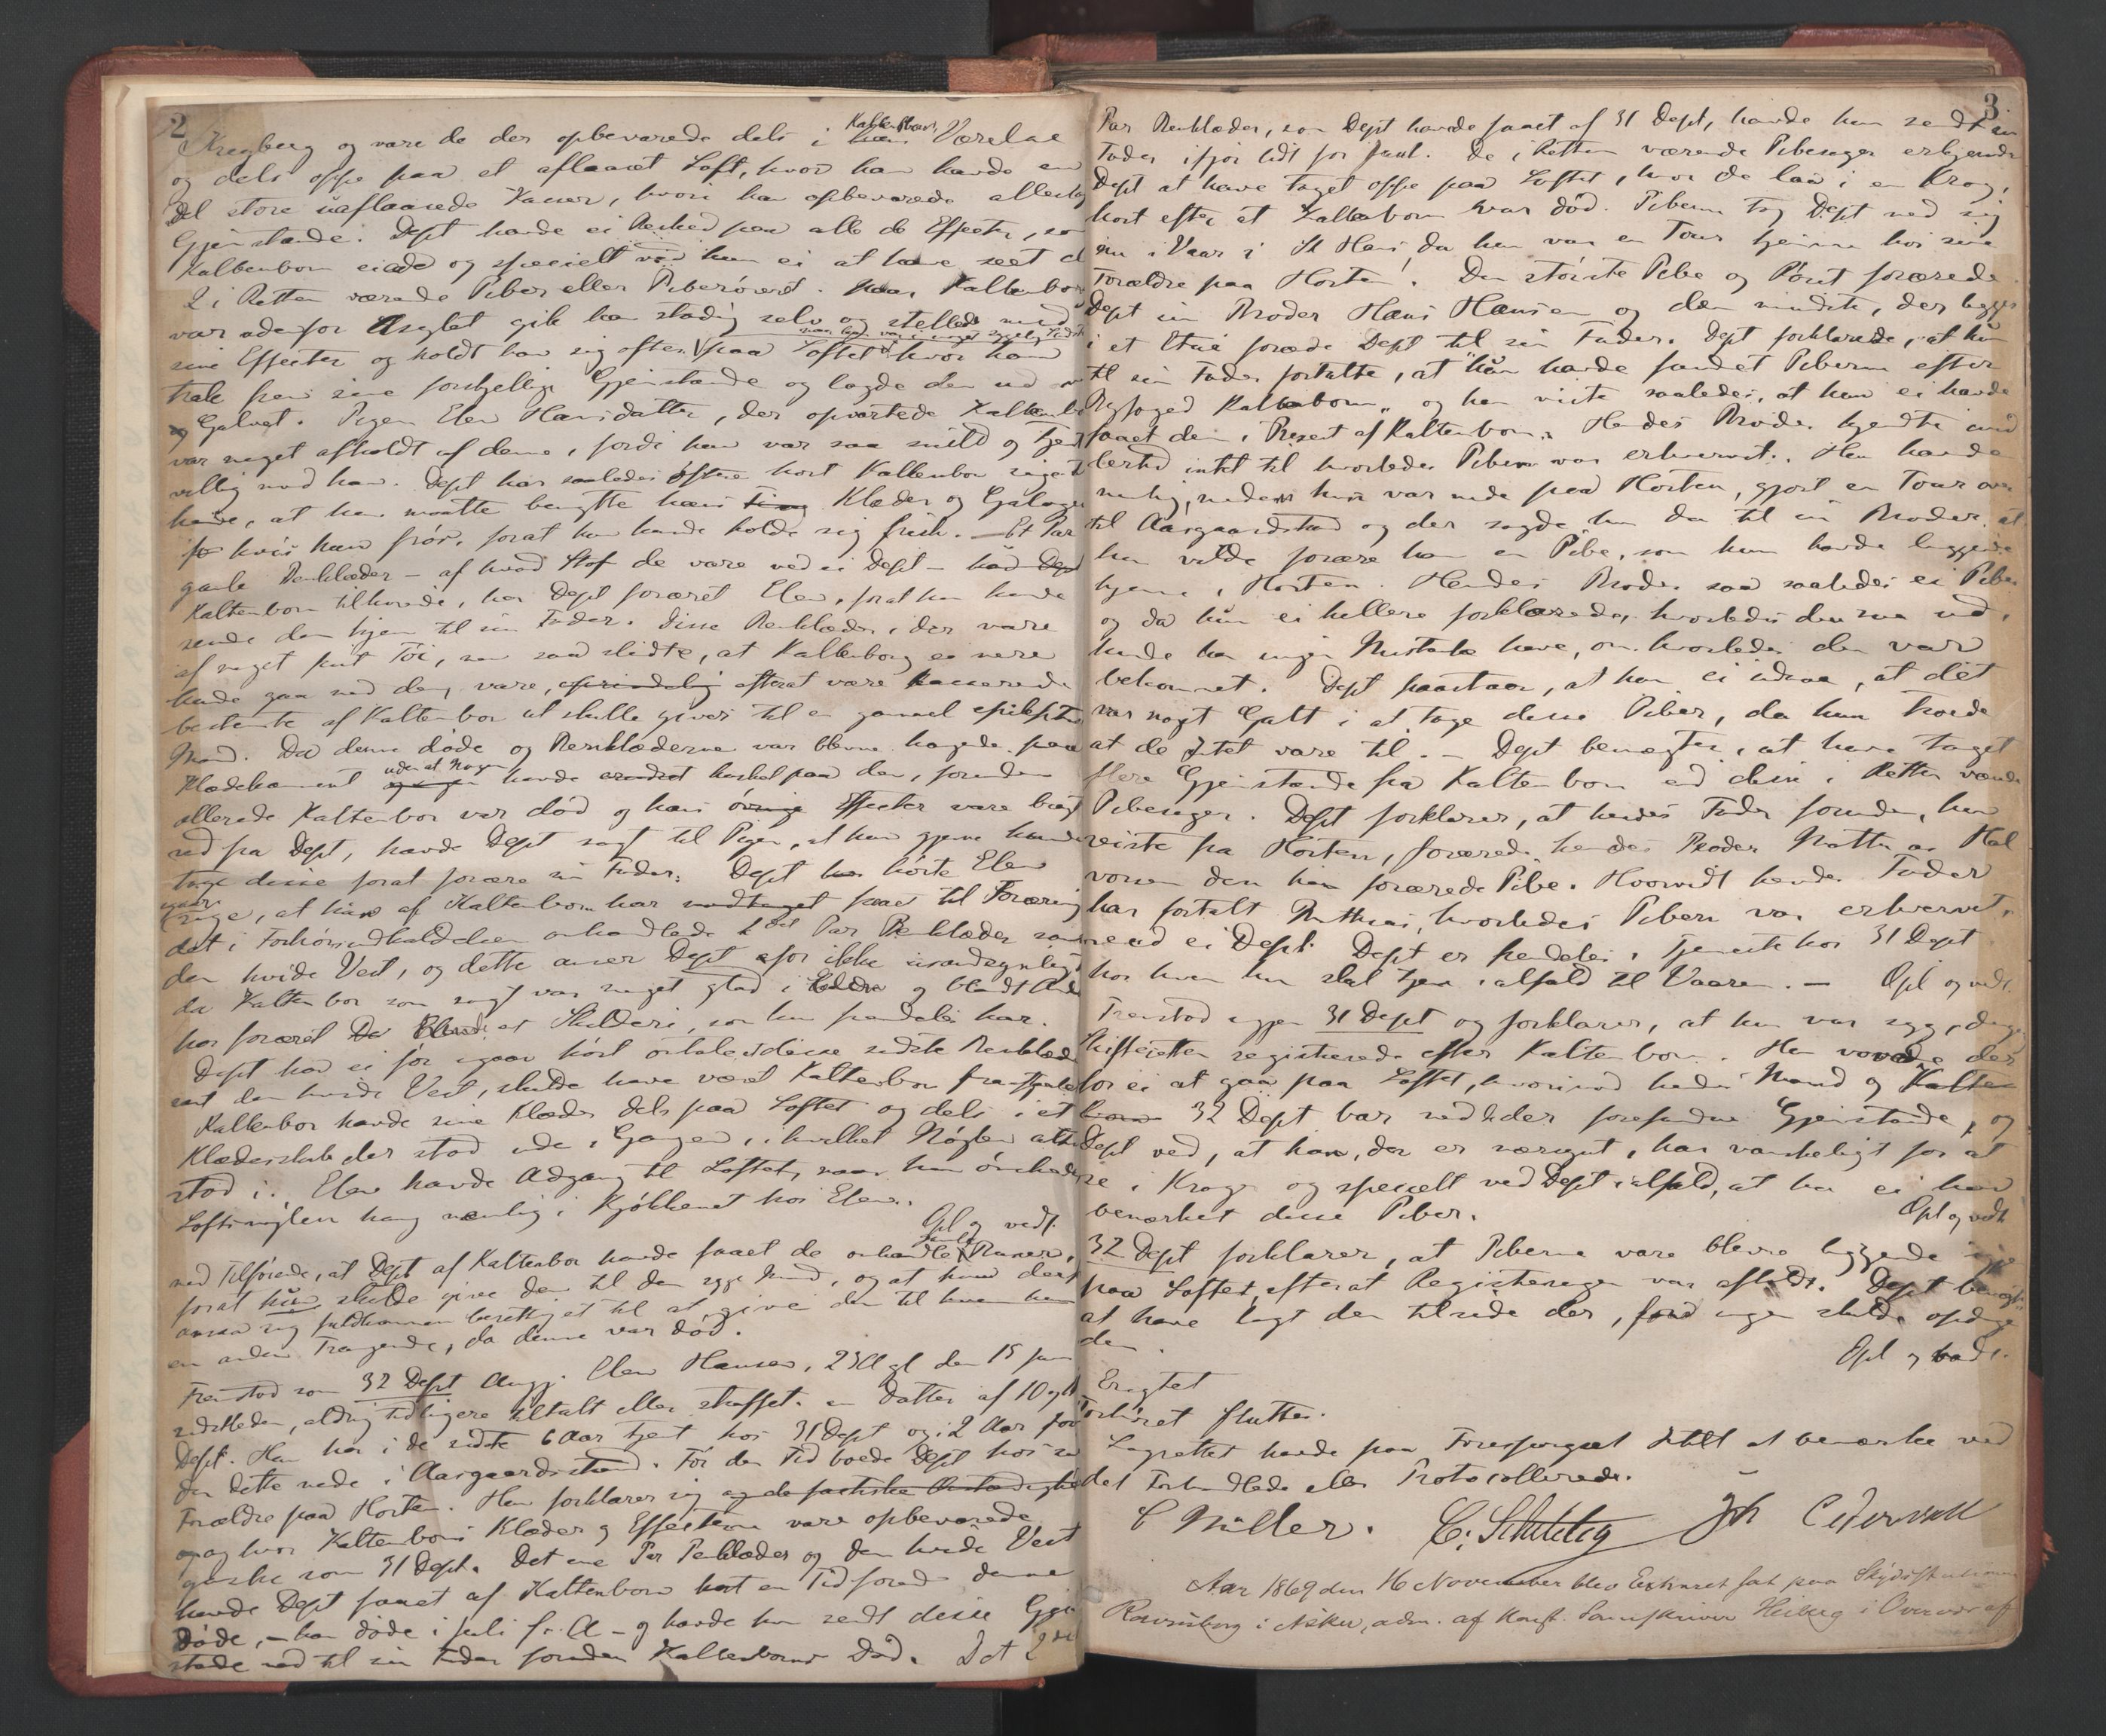 2
Krogberg og vare de der opbevarede dels i Kaltenborns Værelse
og dels oppe paa et aflaaset Loft, hvor han havde en
Del store uaflaasede Kasser, hvori han opbevarede allehaa
Gjenstande. Dept havde ei Beskeed paa alle de Effecter, som
Kaltenborn eiede og specielt ved hun ei at have seet de
2 i Retten værende Piber eller Piberøret. Naar Kaltenborn
var udenfor Asylet gik han stadig selv og stellede med
sine Effecter og holdt han sig ofte paa Loftet hvor han
trak frem sine forskjellige Gjenstande og lagde dem ud
Gulvet. Pigen Elen Hansdatter, der opvartede Kaltenb
var meget afholdt af denne, fordi hun var saa snild og tjenst
villig mod ham. Dept har saaledes oftere hørt Kaltenborn sige til
hende, at hun maatte benytte hans Klæder og Galoger
hvis hun frøs, forat hun kunde holde sig frisk. – Et Par
gamle Benklæder – af hvad Stof de vare ved ei Dept –
Kaltenborn tilhørende, har Dept foræret Elen, forat hun kunde
sende dem hjem til sin Fader. Disse Benklæder, der vare
af noget tyndt Tøi, saa slidte, at Kaltenborn ei mere
kunde gaa med dem, vare, efterat være kasserede
bestemte af Kaltenborn at skulle gives til en gammel epileptisk
Mand. Da denne døde og Benklæderne var blevne hængende paa
Klædekammeret uden at Nogen havde havt paa dem, forinden
allerede Kaltenborn var død og hans øvrige Effecter vare bragt
ned fra Dept, havde Dept sagt til Pigen, at hun gjerne kunde
tage disse forat forære sin Fader. Dept hørte Elen
igaar sige, at hun af Kaltenborn har faaet til Foræring
det i Forhørsudholdelsen omhandlede Par Benklæder samt
den hvide Vest, og dette anser Dept for ikke usandsynligt
da Kaltenborn som sagt var meget glad i Elen og blandt Andet
har foræret et Skilderi, som hun fremdeles har.
Dept har ei før igaar hørt omtale, at disse sidste Benklæder
samt den hvide Vest, skulde have været Kaltenborn frastjaalet
Kaltenborn havde sine Klæder dels paa Loftet og dels i et
Klædesskab der stod ude i Gangen, i hvilket Nøglen altid
stod i. Elen havde Adgang til Loftet, naar hun ønskede
Loftsnøglen hang nemlig i Kjøkkenet hos Elen.
Opl og vedt.
med Tilføiende, at Dept af Kaltenborn havde faaet de omhandlede gamle Buxer,
forat hun skulde give dem til den syge Mand, og at hun derfor
ansaa sig fuldkommen berettiget til at give dem til hvem hun
en anden Trængende, da denne var død.
Fremstod som 32 Dept Ungp. Elen Hansen, 23 A gl den 15 Juni
sidstleden, aldrig tidligere tiltalt eller straffet. en Datter af 10 og 11
Dept. Hun har i de sidste 6 Aar tjent hos 31 Dept og i 2 Aar for
den dette nede i Aasgaardstrand. Før den Tid boede Dept hos sine
Forældre paa Horten. Hun forklarer sig og de factiske Omstændigheder
og hvor Kaltenborns Klæder og Effecterne vare opbevarede
ganske som 31 Dept. Det ene Par Benklæder og den hvide Vest
havde Dept faaet af Kaltenborn kort en Tid forend denne
døde, – han døde i Juli f. A – og havde hun sendt disse Gjen
stande ned til sin Fader forinden Kaltenborns Død. Det 2det
3.
Par Benklæder, som Dept havde faaet af 31 Dept, havde hun sendt sin
Fader ifjor lidt før Juul. De i Retten værende Pibesager erkjender
Dept at have taget oppe paa Loftet, hvor de laa i en Krog,
kort efter at Kaltenborn var død. Piberne tog Dept med sig
nu i Vaar i St Hans, da hun var en Tour hjemme hos sine
Forældre paa Horten. Den største Pibe og Røret forærede
Dept sin Broder Hans Hansen og den mindste, der ligger
i et Etui forærede Dept til sin Fader. Dept forklarede, at hun
til sin Fader fortalte, at "hun havde fundet Piberne efter
Byfoged Kaltenborn" og han vidste saaledes, at hun ei havde
faaet dem i Present af Kaltenborn. Hendes Broder kjendte imid
lertid intet til hvorledes Piben var erhvervet. Hun havde
nemlig, medens hun var nede paa Horten, gjort en Tour over
til Aasgaardstrand og der sagde hun da til sin Broder at
hun vilde forære ham en Pibe, som hun havde liggende
hjemme i Horten. Hendes Broder saa saaledes ei Piben
og da hun ei hellere forklarede, hvorledes den saa ud,
kunde han ingen Mistanke have, om hvorledes den var
bekommet. Dept paastaar, at hun ei indsaa, at det
var noget Galt i at tage disse Piber, da hun troede
at de Intet vare til. – Dept benegter, at have taget
flere Gjenstande fra Kaltenborn end disse i Retten værende
Pibesager. Dept forklarer, at hendes Fader forinden, hun
reiste fra Horten, forærede hendes Broder Matthias Hal
vorsen den ham forærede Pibe. Hvorvidt hendes Fader
har fortalt Matthias, hvorledes Piben var erhvervet,
ved ei Dept. Dept er fremdeles i Tjeneste hos 31 Dept
hos hvem hun skal tjene ialfald til Vaaren. – Opl og vedt.
Fremstod igjen 31 Dept og forklarer, at hun var syg, da
Skifteretten registrerede efter Kaltenborn. Hun vovede der
for ei at gaa paa Loftet, hvorimod hendes Mand og
32 Dept bar ned de der forefundne Gjenstande, og
Dept ved, at han, der er nærsynt, har vanskeligt for at
se i Kroge og specielt ved Dept ialfald, at han ei har
bemærket disse Piber.
Opl og vedt
32 Dept forklarer, at Piberne vare blevne liggende igjen
paa Loftet, efterat Registreringen var afholdt. Dept benegter
at have lagt dem tilside der, forat ingen skulde opdage
dem.
Opl og vedt.
Eragtet
Forhøret sluttes.
Lagrettet havde paa Forespørgsel Intet at bemærke ved
det Forhandlede eller Protocollerede.
C Müller. C. Schilling Joh Cedervall
Aar 1869 den 16 November blev Extraret sat paa Skydsstationen
Ravnsborg i Asker, adm. af Konst. Sorenskriver Heiberg i Overvær af